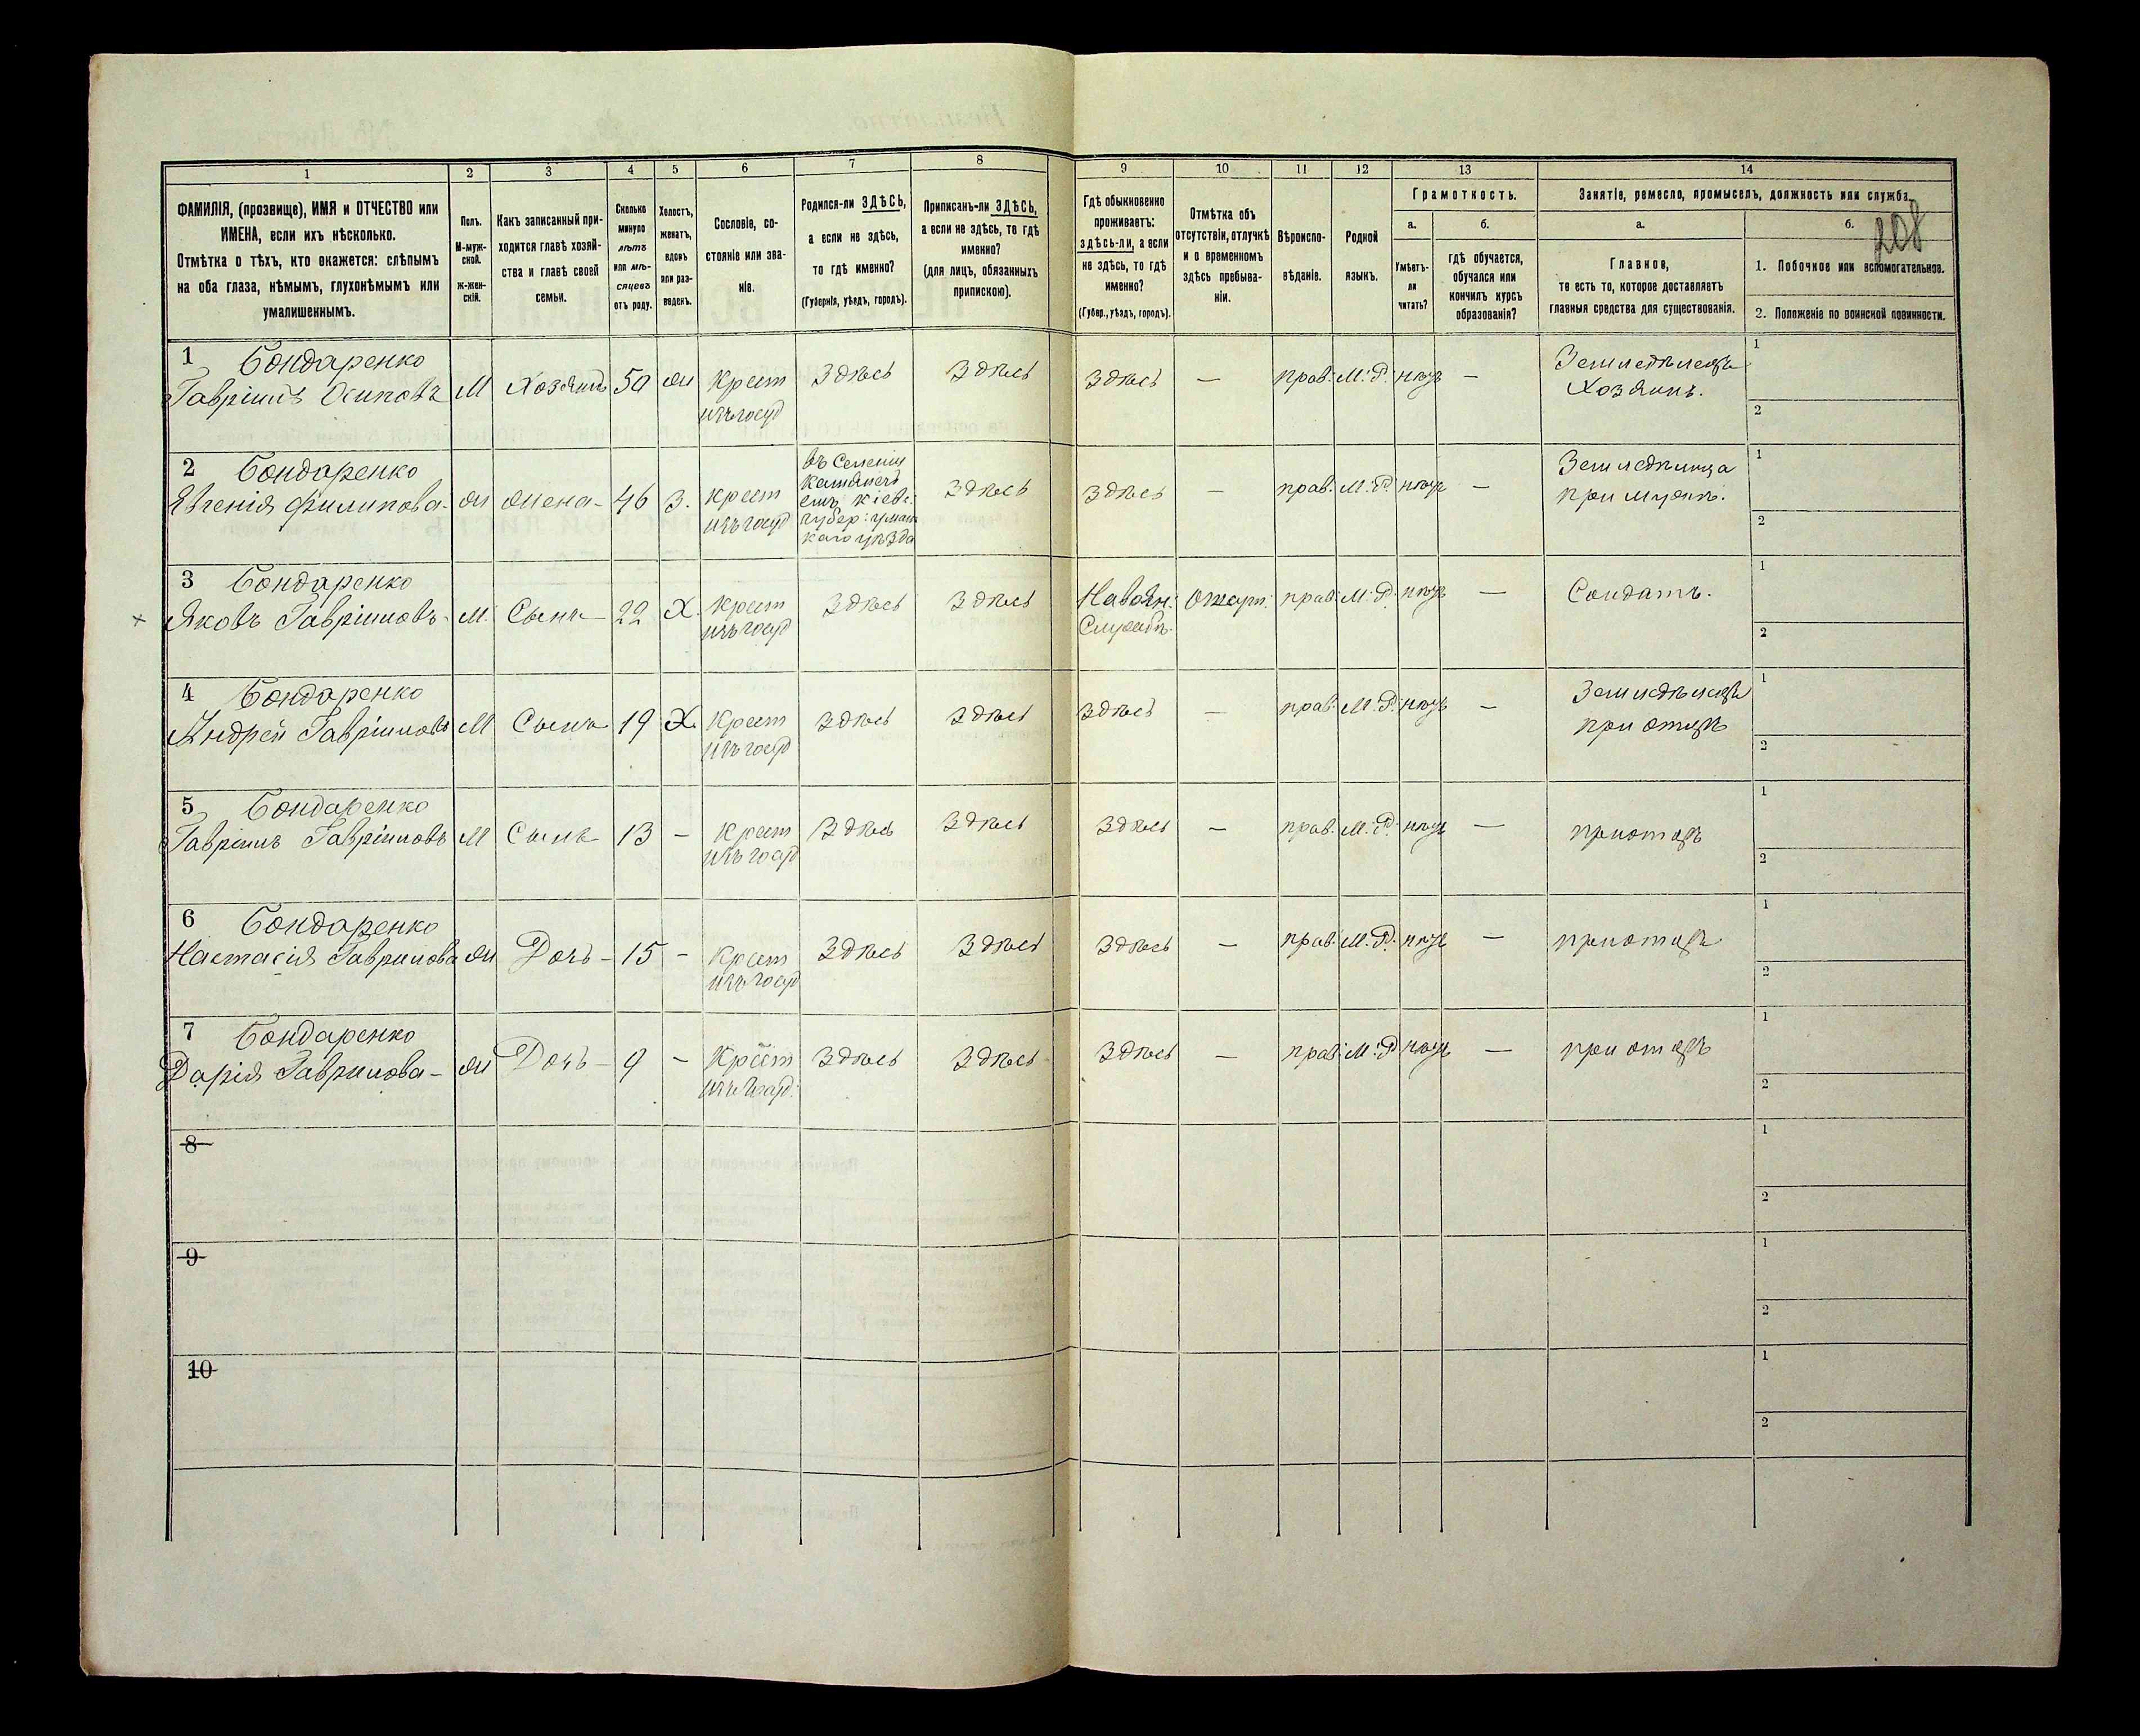 208
1 2 3 4 5 6 7 8 9 10 11 12 13 14
ФАМИЛІЯ, (прозвище), ИМЯ и ОТЧЕСТВО или
ИМЕНА, если ихъ нѣсколько.
Отмѣтка о тѣхъ, кто окажется: слѣпымъ
на оба глаза, нѣмымъ, глухонѣмымъ или
умалишеннымъ.
Полъ.
М-муж-
ской.
Ж-жен-
скій.
Какъ записанный при-
ходится главѣ хозяй-
ства и главѣ своей
семьи.
Сколько
минуло
лѣтъ
или мѣ-
сяцевъ
отъ роду.
Холостъ,
женатъ,
вдовъ
или раз-
веденъ.
Сословіе, со-
стояніе или зва-
ніе.
Родился-ли ЗДѢСЬ,
а если не здѣсь,
то гдѣ именно?
(Губернія, уѣздъ, городъ).
Приписанъ-ли ЗДѢСЬ,
а если не здѣсь, то гдѣ
именно?
(для лицъ, обязанныхъ
припискою).
Гдѣ обыкновенно
проживаетъ:
здѣсь-ли, а если
не здѣсь, то гдѣ
именно?
(Губер., уѣздъ, городъ).
Отмѣтка объ
отсутствіи, отлучкѣ
и о временномъ
здѣсь пребыва-
ніи.
Вѣроиспо-
вѣданіе.
Родной
языкъ.
Грамотность.
а.
Умѣетъ-
ли
читать?
б.
гдѣ обучается,
обучался или
кончилъ курсъ
образованія?
Занятіе, ремесло, промыселъ, должность или служба.
а.
Главное,
то есть то, которое доставляетъ
главныя средства для существованія.
б.
1. Побочное или вспомогательное.
2. Положеніе по воинской повинности.
1 Бондаренко
Гавріилъ Осиповъ М Хозяинъ 50 ж Крест Здѣсь Здѣсь Здѣсь — прав. М.Р. — Земледѣлецъ
Хозяинъ.
1
2
2 Бондаренко
Евгенія Филипова- ж жена- 46 З. крест въ Селеніи Здѣсь Здѣсь — прав. М.Р. — Земледѣлица
Кіевс.
губер: уман
каго уѣзда
при мужѣ.
1
2
3 Бондаренко
× Яковъ Гавріиловъ- М. Сынъ- 22 Х. Крест Здѣсь Здѣсь На воен: прав. М.Р. — Солдатъ.
Службѣ.
1
2
4 Бондаренко
Андрей Гавріиловъ М Сынъ 19 Х Крест Здѣсь Здѣсь Здѣсь — прав. М.Р. — Земледѣлецъ
при отцѣ
1
2
5 Бондаренко
Гавріилъ Гавріиловъ М Сынъ 13 - Крест Здѣсь Здѣсь Здѣсь — прав. М.Р. — при отцѣ
1
2
6 Бондаренко
Настасія Гаврилова ж Дочь- 15 - Крест Здѣсь Здѣсь Здѣсь — прав. М.Р. — при отцѣ
1
2
7 Бондаренко
Дарія Гаврилова- ж Дочь- 9 - Крест Здѣсь Здѣсь Здѣсь — прав. М.Р. — при отцѣ
1
2
8
1
2
9
1
2
10
1
2